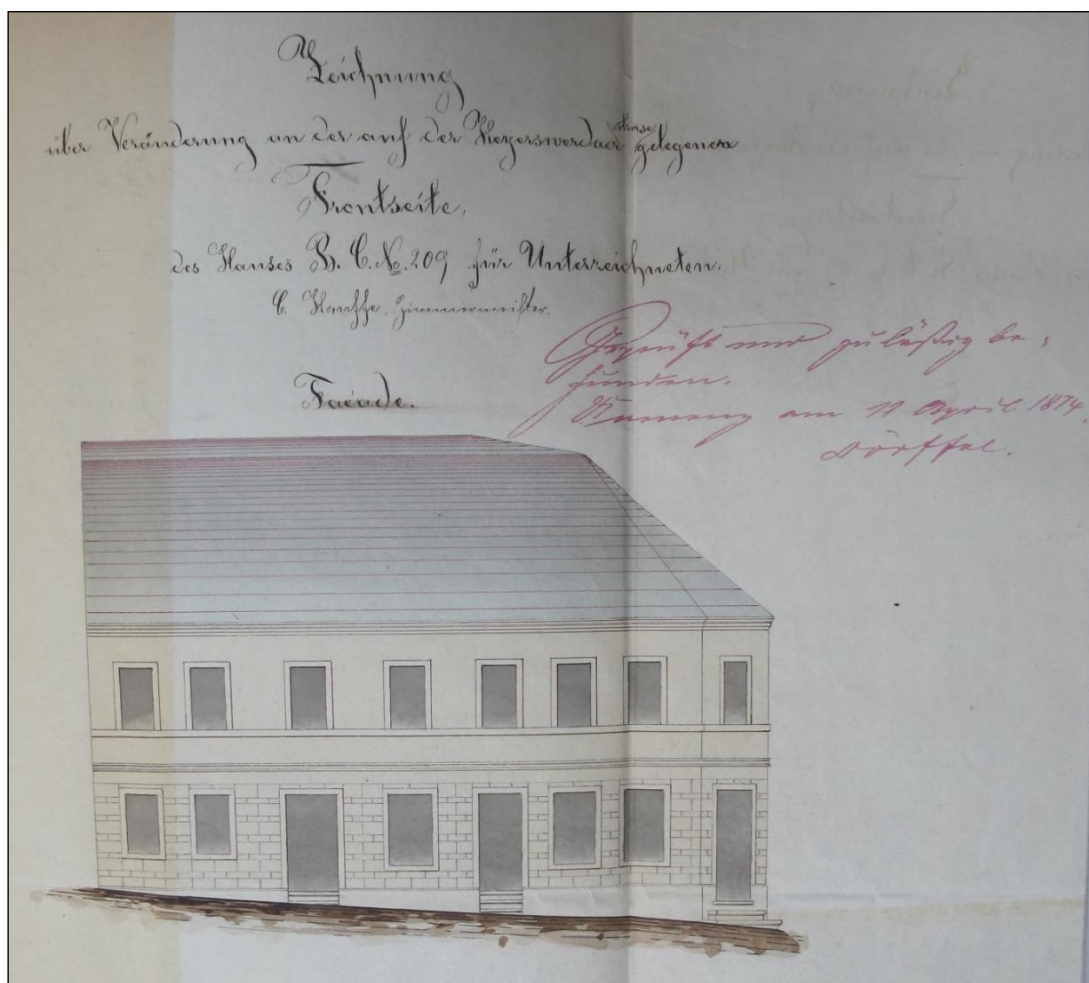 Zeichnung
über Veränderung an der auf der Hoyerswerdaer strase gelegenen
Frontseite,
des Hauses B. C. No. 209 für Unterzeichneten.
C. Zimmermeister.
Facade.
Geprüft und zuläßig be-
funden.
Kamenz am 11 April 1874.
Dörffel.